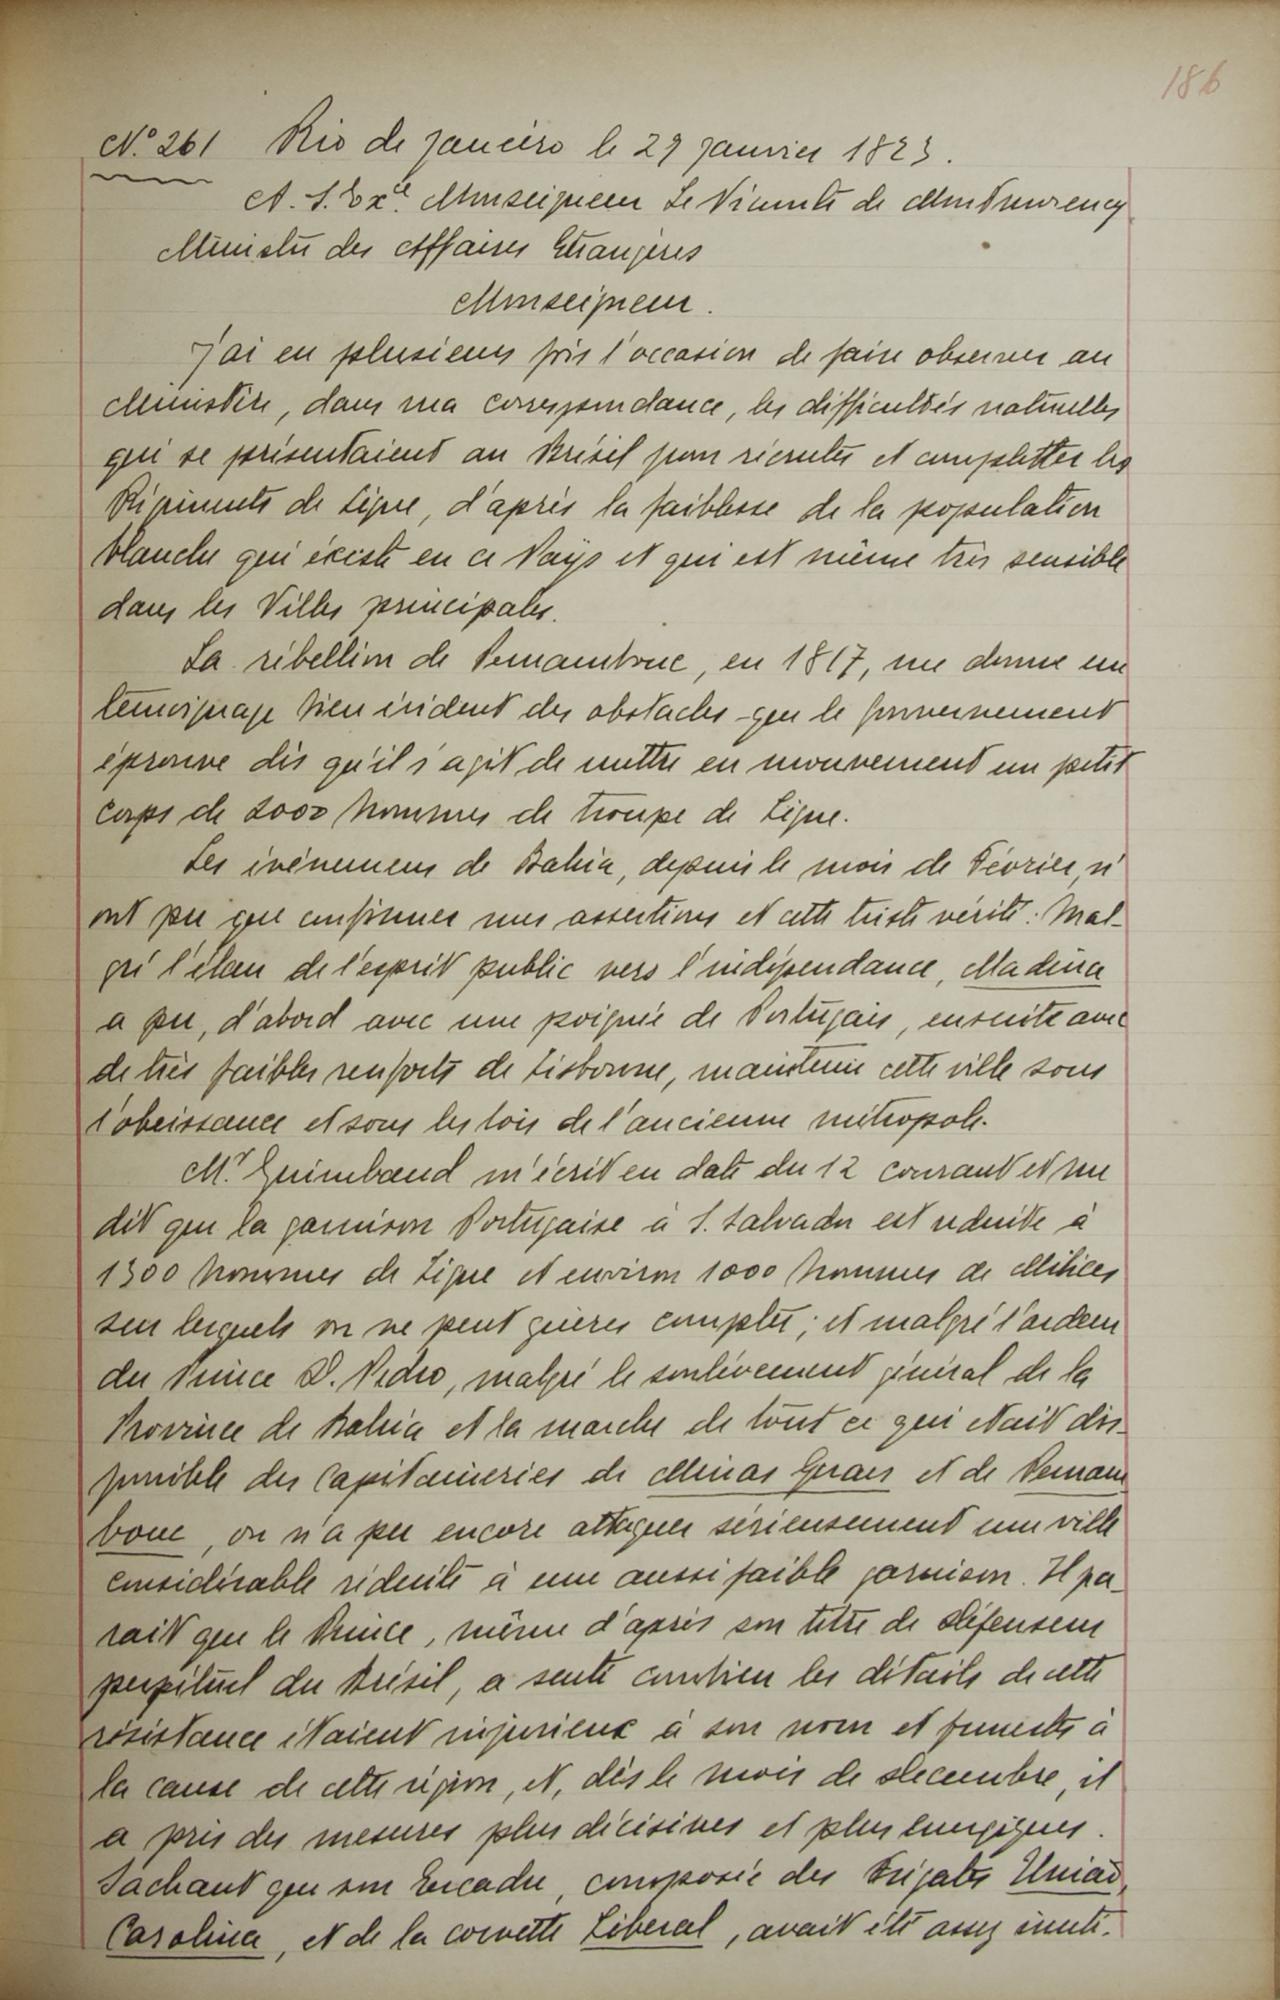 186
N.° 261 Rio de Janeiro le 29 janvier 1823.
A. S. Ex.ce Monseigneur Le Vicomte de Montmorency
Ministre des Affaires Etrangères
Monseigneur.
J'ai eu plusieurs fois l'occasion de faire observer au
Ministère, dans ma correspondance, les difficultés naturelles
qui se présentaient au Brésil pour récruter et completter les
Régiments de Ligne, d'après la faiblesse de la population
blanche qui éxiste en ce Pays et qui est même très sensible
dans les Villes principales.
La rébellion de Pernambouc, en 1817, me donne un
témoignage bien évident des obstacles que le gouvernement
éprouve dès qu'il s'agit de mettre en mouvement un petit
corps de 2000 hommes de troupe de Ligne.
Les événemens de Bahia, depuis le mois de Février, n'
ont pu que confirmer mes assertions et cette triste vérité: Mal-
gré l'élan de l'esprit public vers l'indépendance, Madeira
a pu, d'abord avec une poignée de Portugais, ensuite avec
de très faibles renforts de Lisbonne, maintenir cette ville sous
l'obeissance et sous les lois de l'ancienne métropole.
M.r Guimbaud m'écrit en date du 12 courant et me
dit que la garnison Portugaise à S. Salvador est reduite à
1300 hommes de Ligne et environ 1000 hommes de Milices
sur lesquels on ne peut guères compter; et malgré l'ardeur
du Prince D. Pedro, malgré le soulèvement général de la
Province de Bahia et la marche de tout ce qui était dis-
ponible des Capitaineries de Minas Geraes et de Pernam
bouc, on n'a pu encore attaquer sérieusement une ville
considérable réduite à une aussi faible garnison. Il pa-
rait que le Prince, même d'après son titre de défenseur
perpétuel du Brésil, a senti combien les détails de cette
résistance étaient injurieux à son nom et funestes à
la cause de cette région, et, dès le mois de decembre, il
a pris des mesures plus décisives et plus energiques.
Sachant que son Escadre, composée des Frigates União,
Carolina, et de la corvette Liberal, avait été assez inuti-